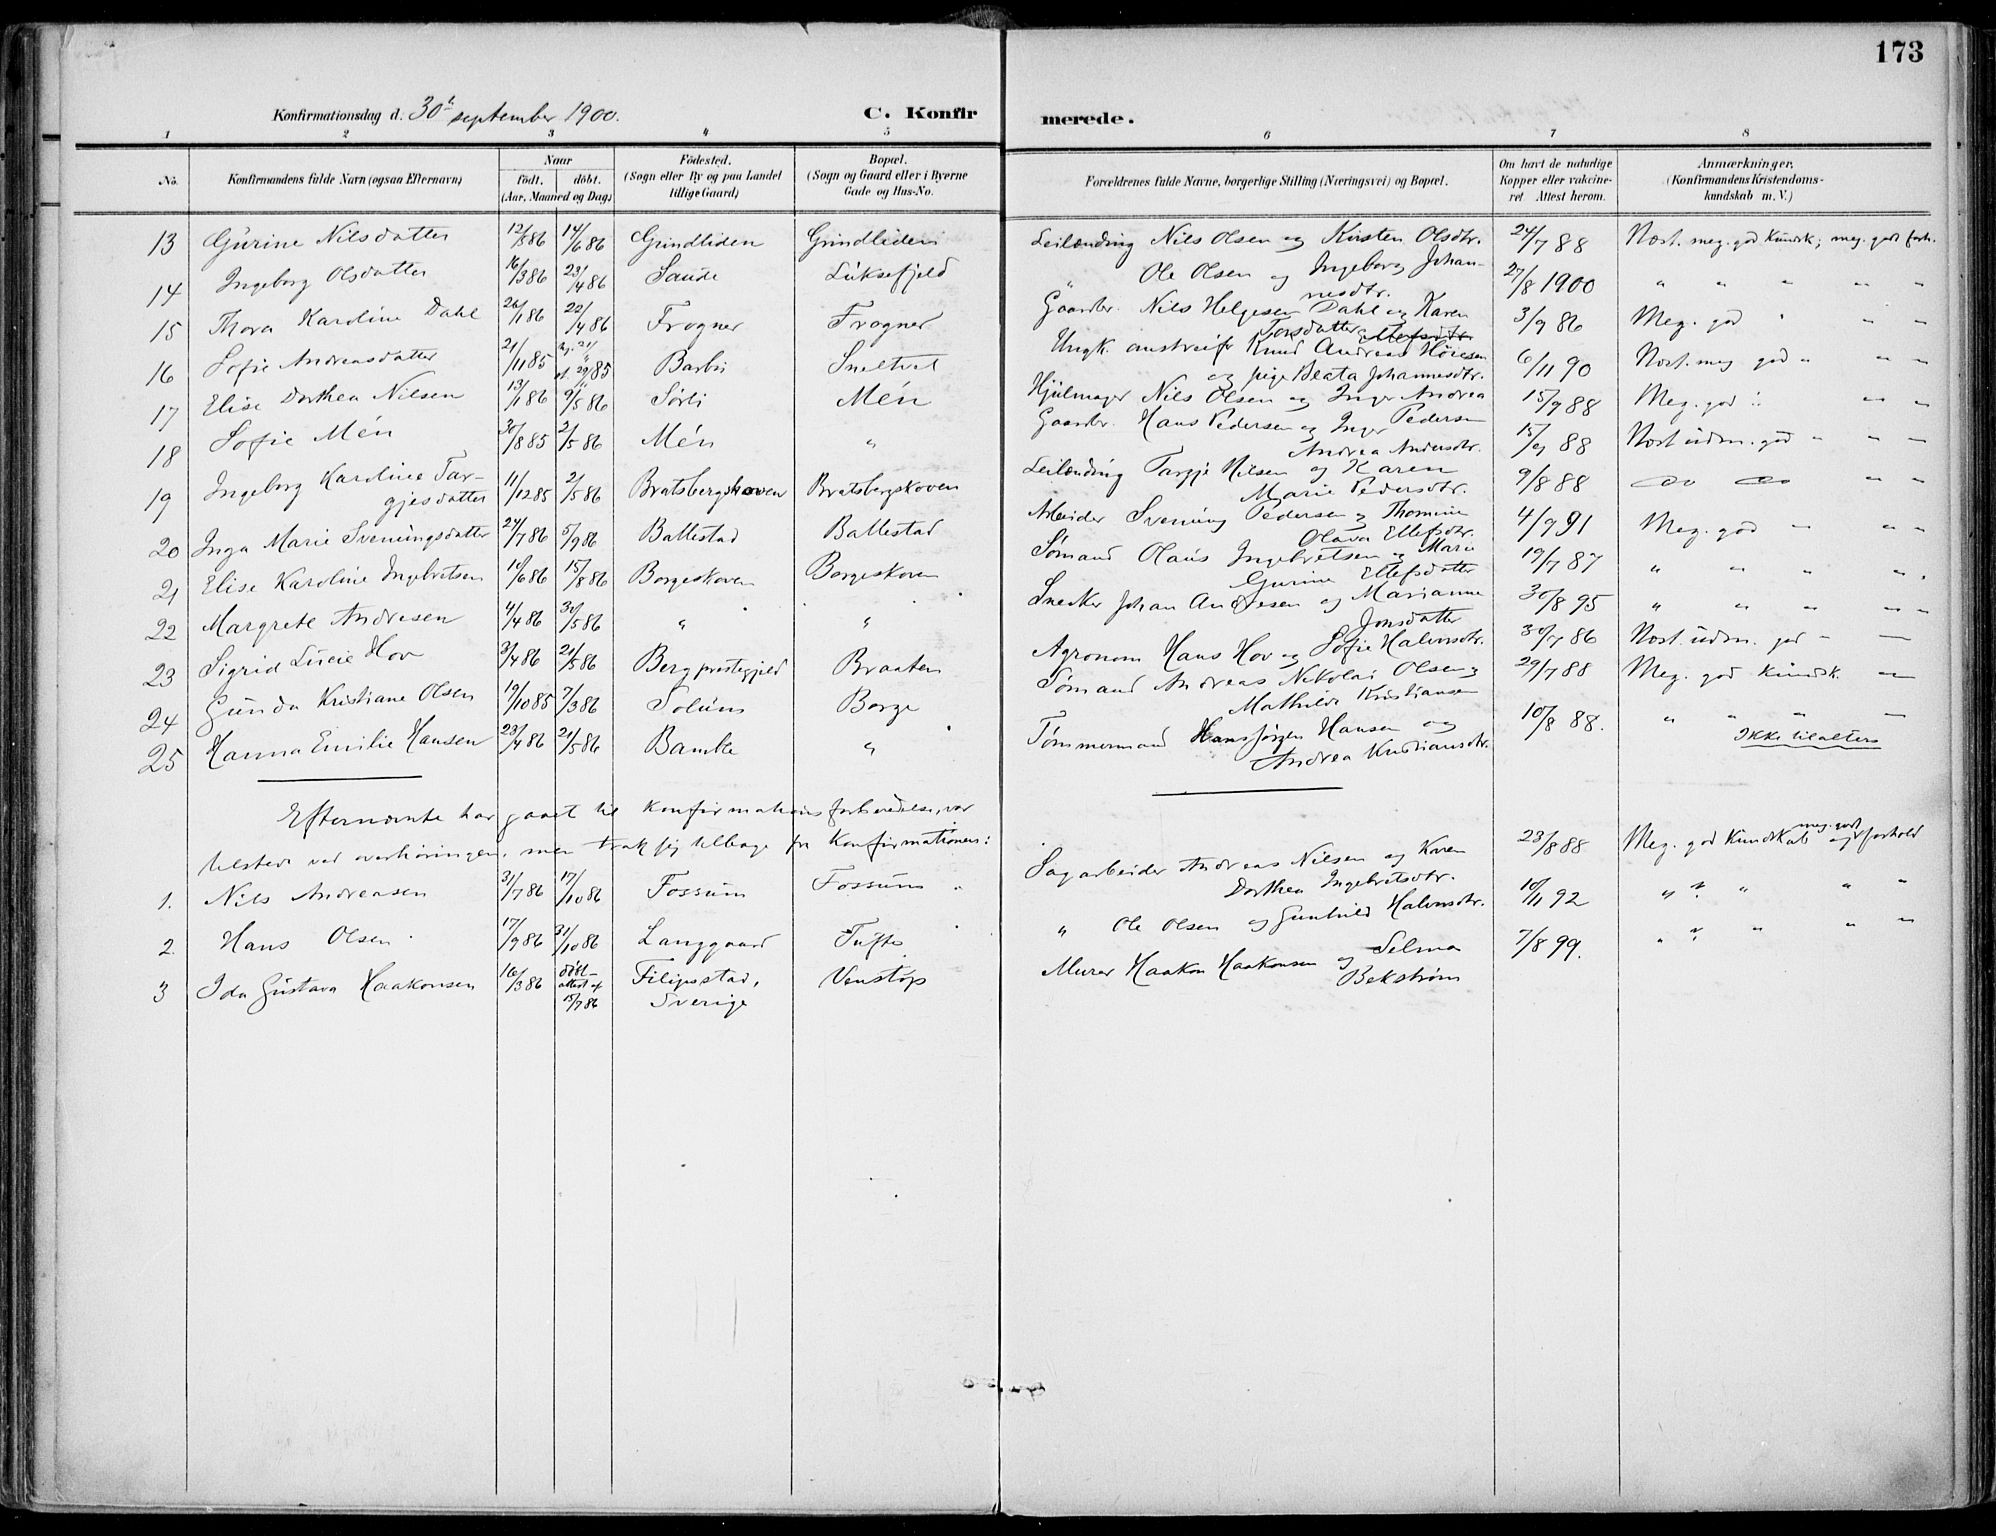 173
Konfirmationsdag d. 30th september 1900. C. Konfir merede.
1 2 3 4 5 6 7 8
No. Konfirmandens fulde Navn (ogsaa Efternavn) Naar födt. döbt. (Aar, Maaned og Dag) Födested. (Sogn eller By og paa Landet tillige Gaard) Bopæl. (Sogn og Gaard eller i Byerne Gade og Hus-No. Forældrenes fulde Navne, borgerlige Stilling (Næringsvei) og Bopæl. Om havt de naturlige Kopper eller vakcineret Attest herom. Anmærkninger. (Konfirmandens Kristendomskundskab m. V.)
13 Gurine Nilsdatter 12/5 86 14/6 86 Grindliden Grindliden Leilænding Nils Olsen og Kirsten Olsdtr. 24/7 88 Næst. meg. god kundsk; meg. god forh.
14 Ingeborg Olsdatter 16/3 86 23/4 86 Saude Luksefjeld " Ole Olsen og Ingeborg Johannesdtr. 27/8 1900 " " " " "
15 Thora Karoline Dahl 26/1 86 22/4 86 Frogner Frogner Gaardbr. Nils Helgesen Dahl og Karen Torsdatter 3/9 86 Meg. god " " "
16 Sofie Andreasdatter 21/11 85 21/ 29/ 85 Barbu Sneltvet Ungk. Knud Andreas og pige Beata Johannesdtr. 6/11 90 Næst. meg god " " "
17 Elise Dorthea Nilsen 13/1 86 9/5 86 Sørli Mén Hjulmager Nils Olsen og Inger Andrea Pedersen 15/9 88 Meg. god " " "
18 Sofie Mén 30/8 85 2/5 86 Mén " Gaardbr. Hans Pedersen og Inger Andrea Andersdtr. 15/9 88 Næst udm. god " " "
19 Ingeborg Karoline Targjesdatter 11/12 85 2/5 86 Bratsbergskoven Bratsbergskoven Leilænding Targje Nilsen og Karen Marie Pedersdtr. 9/8 88 do do " "
20 Inga Marie Sveningsdatter 24/7 86 5/9 86 Ballestad Ballestad Arbeider Svening Pedersen og Thomine Olava Ellefsdtr. 4/9 91 Meg. god " " "
21 Elise Karoline Ingebretsen 10/6 86 15/8 86 Borgeskoven Borgeskoven Sømand Olaus Ingebretsen og Marie Gurine Ellefsdatter 19/7 87 " " " " "
22 Margrete Andresen 4/4 86 30/5 86 " " Snecker Johan Andresen og Marianne Jonsdatter 30/8 95 " " " " "
23 Sigrid Lucie Hov 3/4 86 21/5 86 Berg prestegjeld Braaten Agronom Hans Hov og Sofie Halvorsdtr. 30/7 86 Næst udm. god " "
24 Gunda Kristiane Olsen 19/10 85 7/3 86 Solum Borge Sømand Andreas Nikolai Olsen og Mathilde Kristiansen 29/7 88 Meg. god kundsk. "
25 Hanna Emilie Hansen 23/4 86 21/5 86 Bamle " Tømmermand Hans Jørgen Hansen og Andrea Kristiansdtr. 10/8 88. " " " "
Ikke tilalters
Efternævnte har gaaet til Konfirmationsforberedelse, var
tilstede ved overhøringen, men trak sig tilbage fra Konfirmationen:
1. Nils Andreasen 31/7 86 17/10 86 Fossum Fossum Sagarbeider Andreas Nilsen og Karen Dorthea Ingebretsdtr. 23/8 88 Meg. god Kundskab og meg. godt forhold
2. Hans Olsen 17/9 86 31/10 86 Langgaard Tufte " Ole Olsen og Gunhild Halvorsdtr. 10/11 92 " " " " "
3 Ida Gustava Haakonsen 16/3 86 døbt- attest af 15/7 86 Filipsstad, Sverige Venstøp Murer Haakon Haakonsen og Selma Bekstrøm 7/8 99. " " " " "